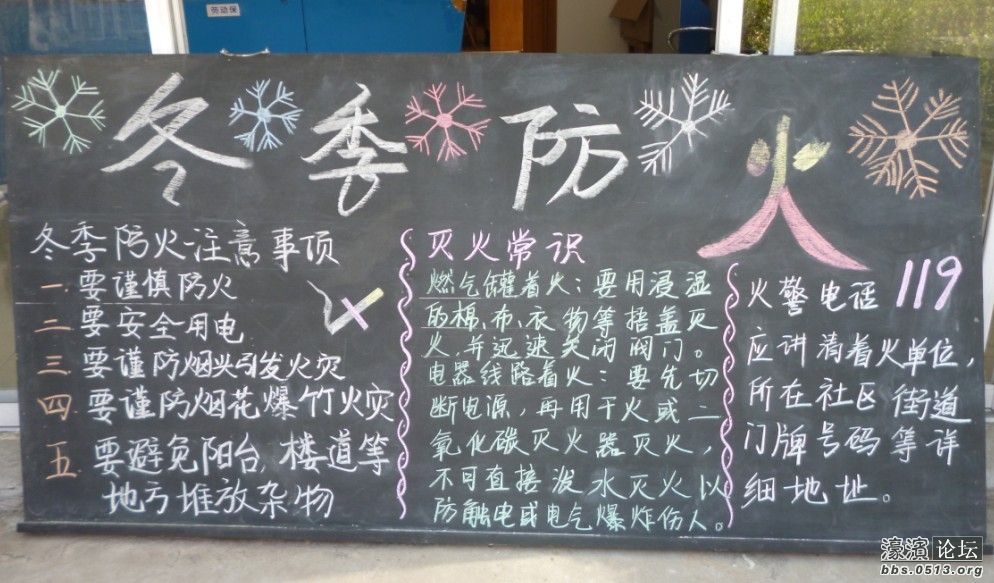 劳动保
冬季防火
冬季防火注意事项
一.要谨慎防火
二.要安全用电
三.要谨防烟头引发火灾
四.要谨防烟花爆竹火灾
五.要避免阳台,楼道等
地方堆放杂物
灭火常识
燃气罐着火:要用浸湿
的棉、布、衣物等捂盖灭
火,并迅速关闭阀门。
电器线路着火:要先切
断电源,再用干火或二
氧化碳灭火器灭火,
不可直接泼水灭火以
防触电或电气爆炸伤人。
火警电话 119
应讲清着火单位,
所在社区 街道
门牌号码等详
细地址。
濠滨论坛
bbs.0513.org